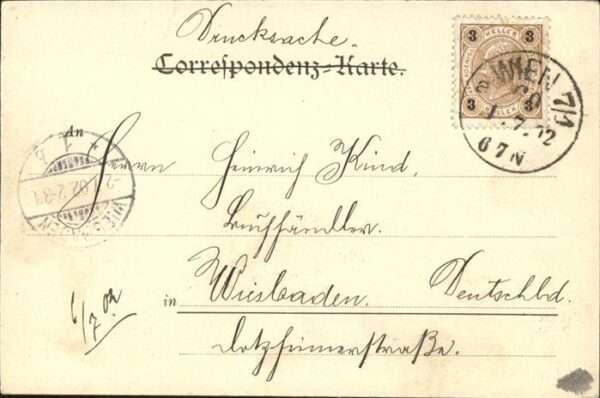 Drucksache.
Correspondenz-Karte.
3 HELLER 3
3 3
WIEN 7/1
1.7.02
6 7 N
An
Herrn Heinrich Kind.
Buchhändler.
in Wiesbaden. Deutschld.
Dotzheimerstraße.
6/7 02